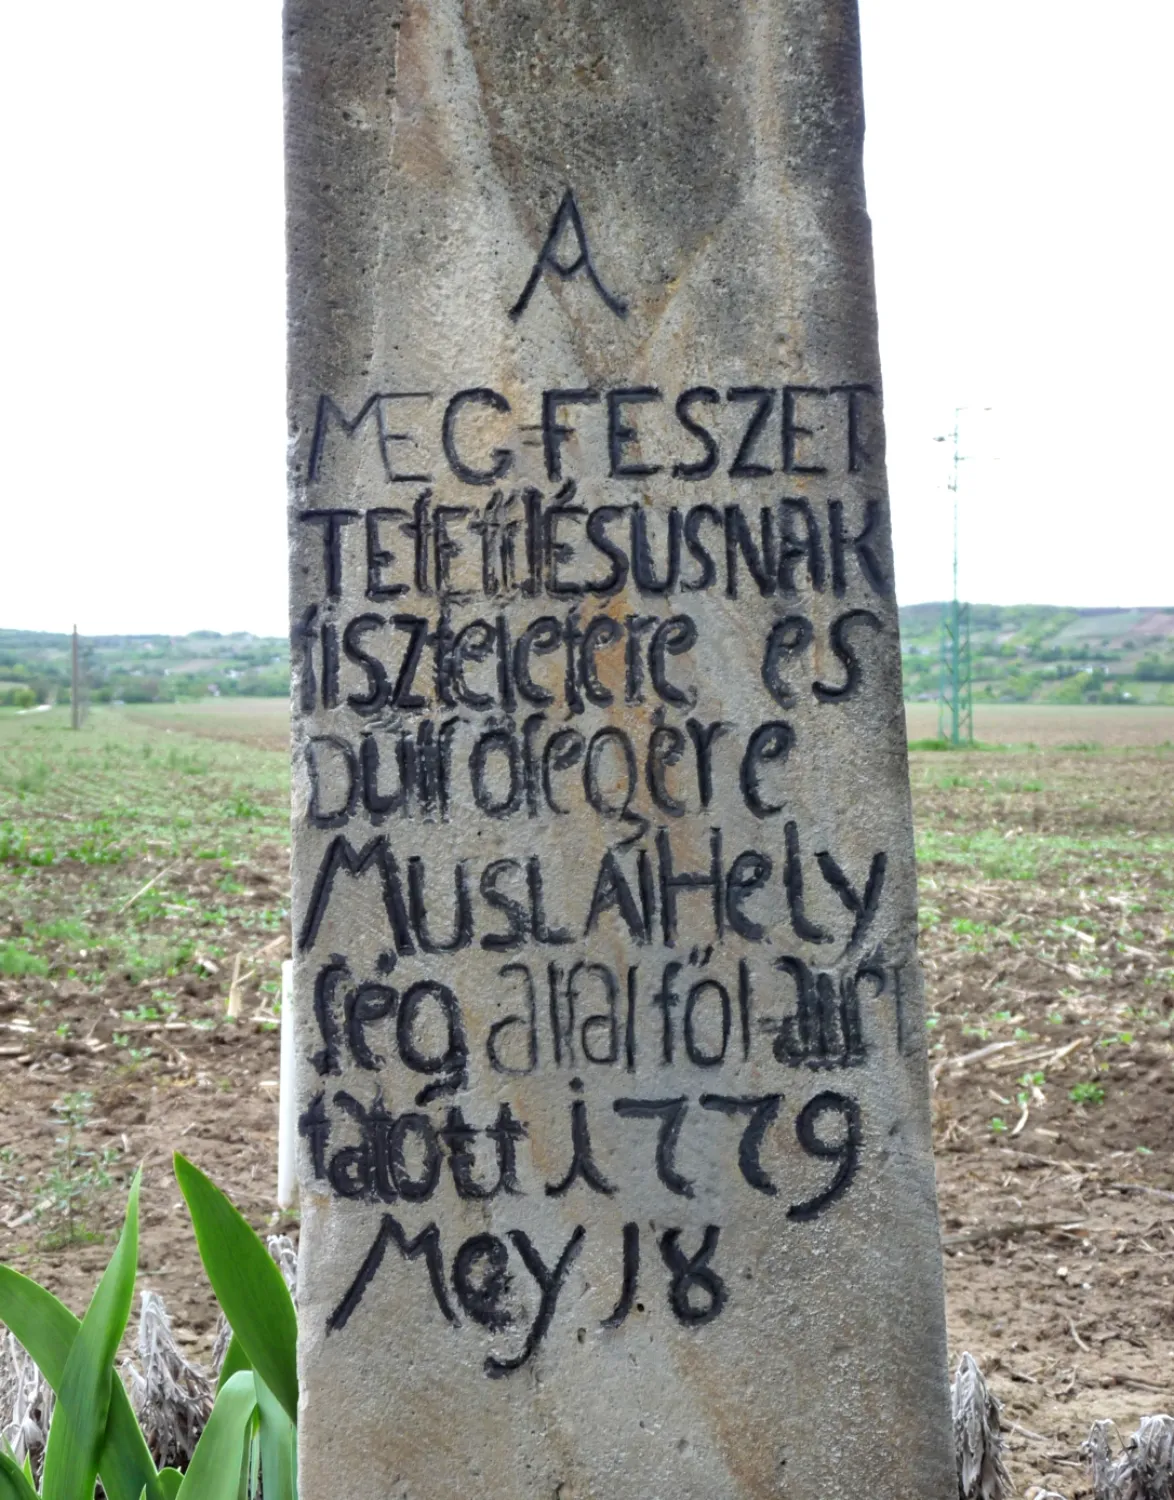 A
MEG-FESZET
TETETT JÉSUSNAK
tiszteletére es
DüTsőségére
MUSLAIHely
ség által föl-állít
tatótt 1779
Mey 18